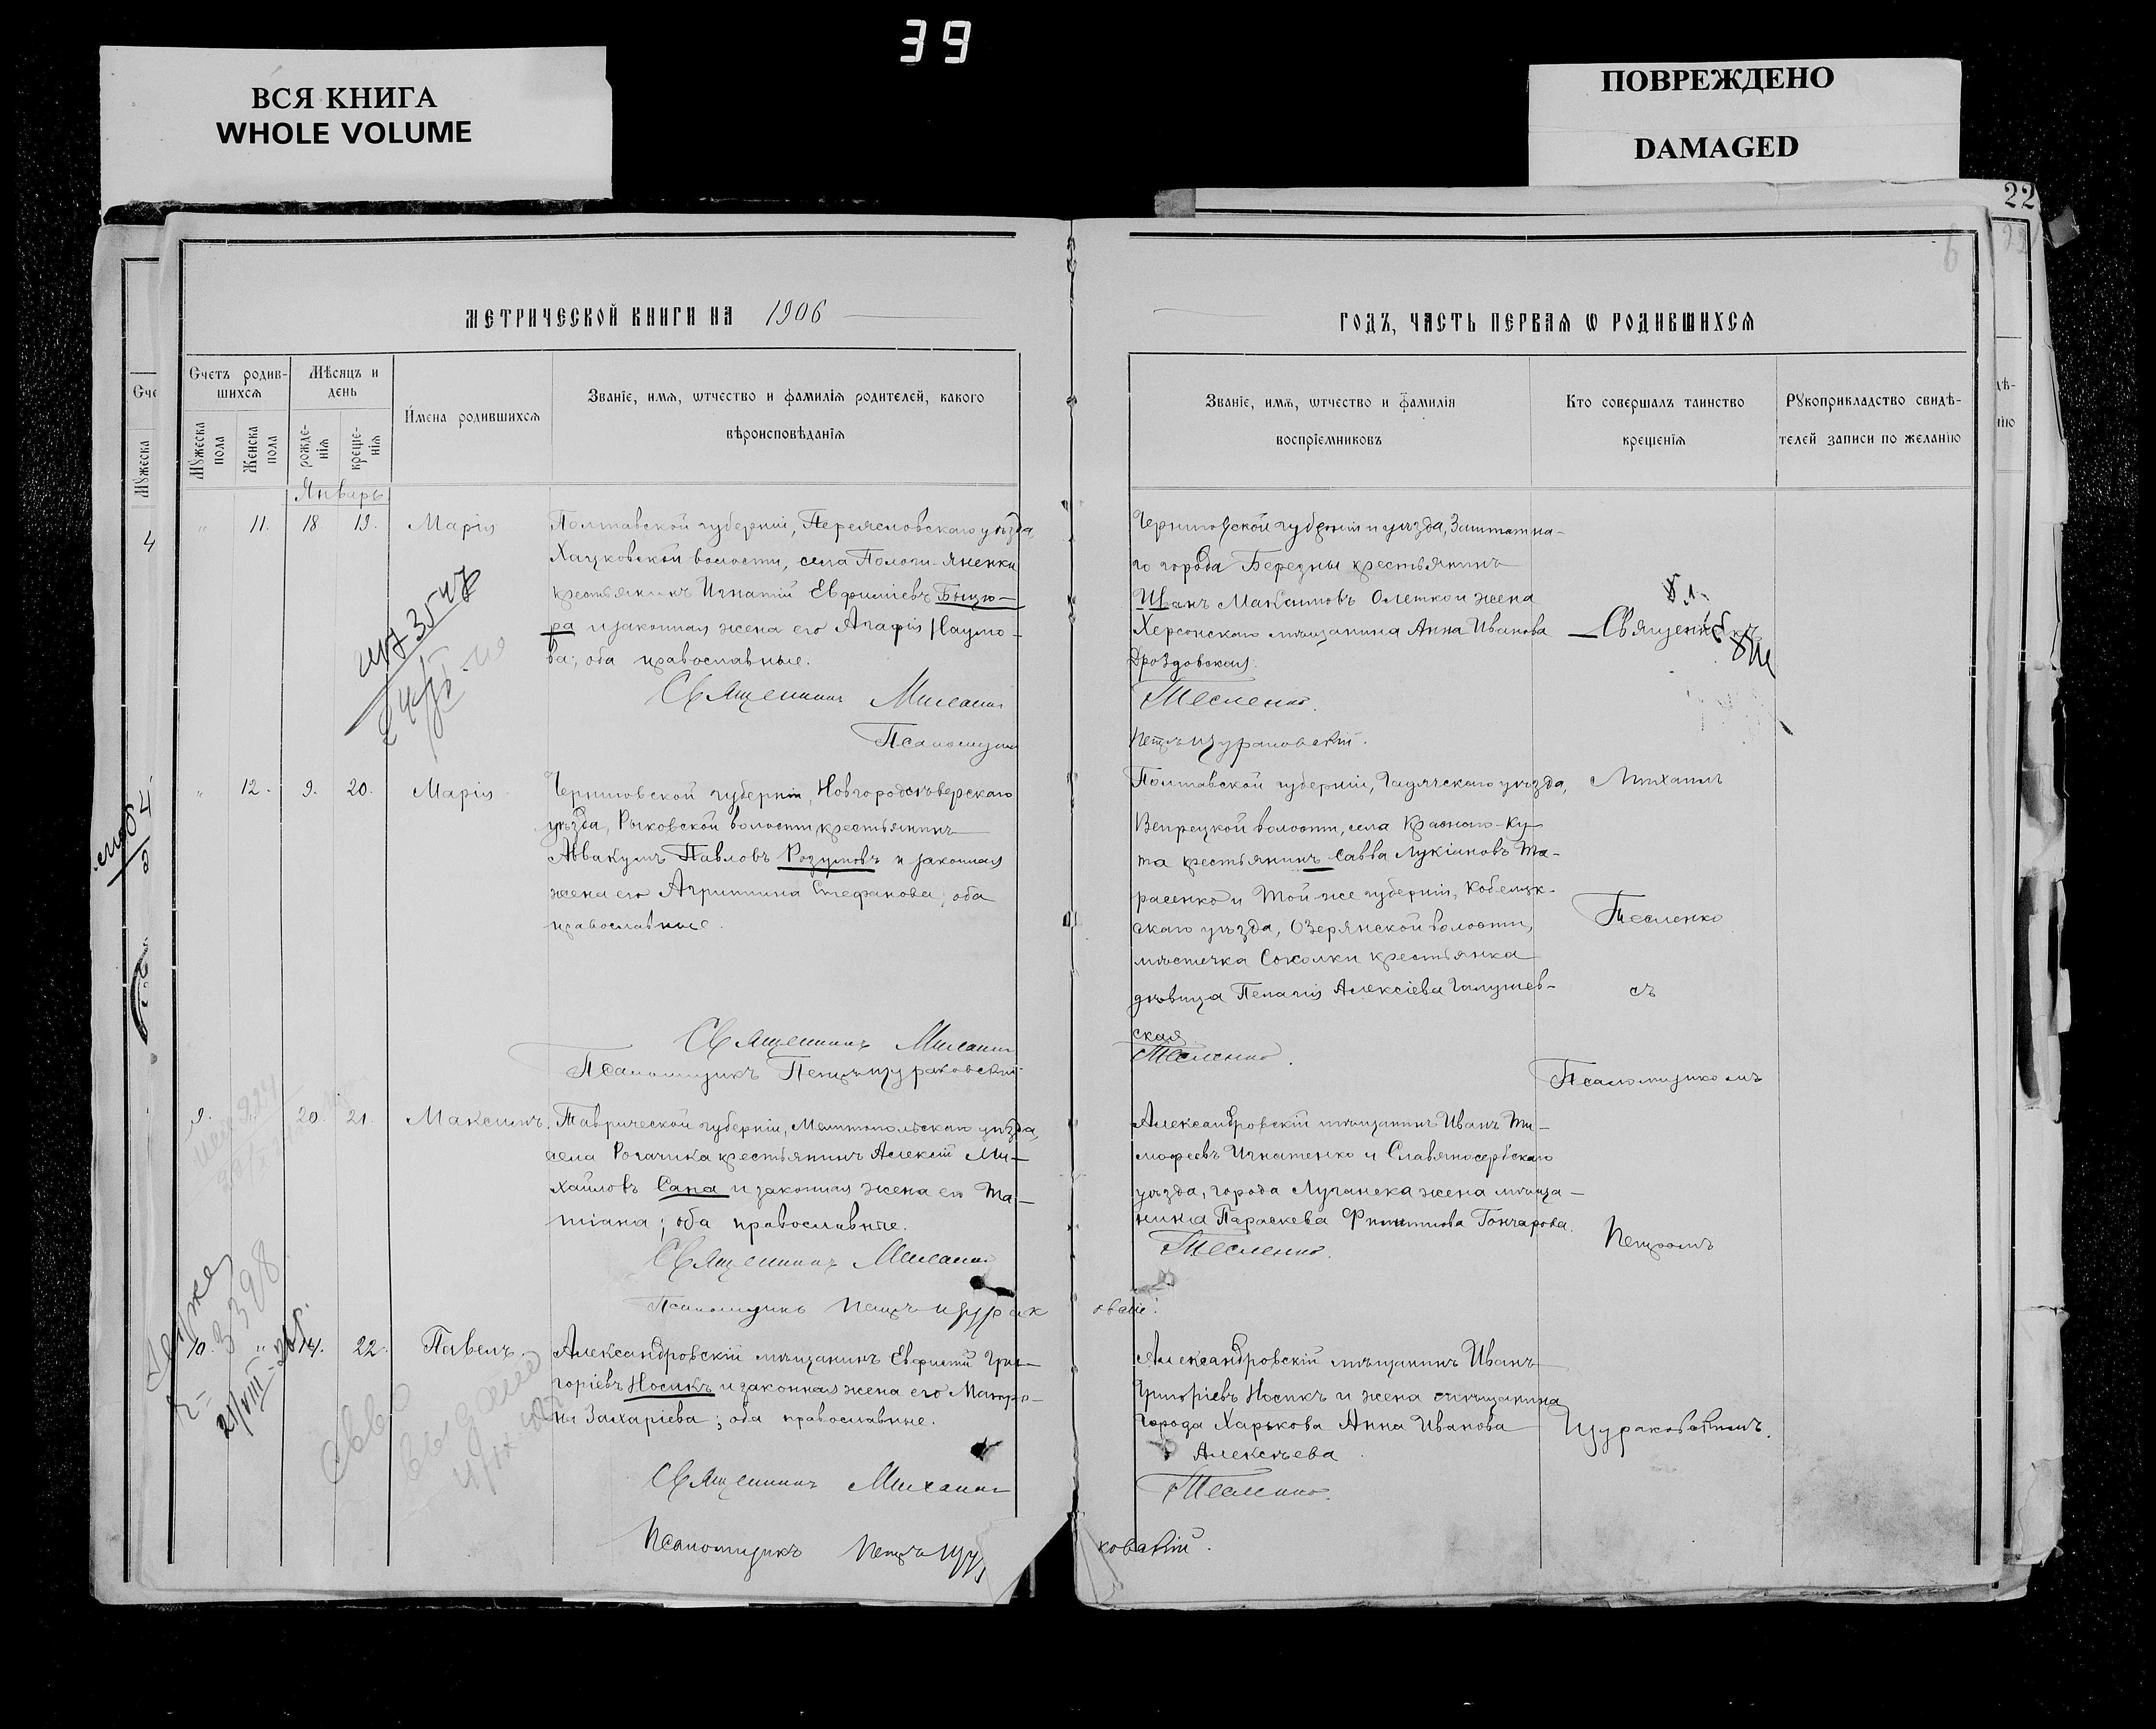 39
ВСЯ КНИГА
WHOLE VOLUME
ПОВРЕЖДЕНО
DAMAGED
22
6
МЕТРИЧЕСКОЙ КНИГИ НА 1906
ГОДЪ, ЧАСТЬ ПЕРВАЯ Ѡ РОДИВШИХСЯ
Счетъ родив-
шихся
Мѣсяцъ и
день
Мꙋжеска
пола
Женска
пола
рожде-
нія
креще-
нія
Имена родившихся
Званіе, имя, ѡтчество и фамилія родителей, какого
вѣроисповѣданія
Званіе, имя, ѡтчество и фамилія
воспріемниковъ
Кто совершалъ таинство
крещенія
Рꙋкоприкладство свидѣ-
телей записи по желанію
Январь
" 11. 18 19. Марія
Полтавской губерніи, Переяславскаго уѣзда,
Хацковской волости, села Пологи-Яненки
крестьянинъ Игнатій Евфиміевъ Быцю-
ра и законная жена его Агафія Наумо-
ва; оба православные.
Священникъ Михаилъ
Псаломщикъ
Черниговской губерніи и уѣзда, Заштатна-
го города Березны крестьянинъ
Иванъ Максимовъ Олешко и жена
Херсонскаго мѣщанина Анна Иванова
Дроздовская.
Тесленко.
Петръ Щураковскій.
Священникъ
" 12. 9. 20. Марія
Черниговской губерніи, Новгородсѣверскаго
уѣзда, Рыковской волости крестьянинъ
Аввакумъ Павловъ Розумовъ и законная
жена его Агриппина Стефанова; оба
православные.
Священникъ Михаилъ
Псаломщикъ Петръ Щураковскій
Полтавской губерніи, Гадячскаго уѣзда,
Веприцкой волости, села Красного-Ку-
та крестьянинъ Савва Лукіановъ Та-
расенко и той-же губерніи, Кобеляк-
скаго уѣзда, Озерянской волости,
мѣстечка Соколки крестьянка
дѣвица Пелагія Алексіева Галушев-
ская
Тесленко.
Михаилъ
Тесленко
съ
Псаломщикомъ
9. " 20. 21. Максимъ.
Таврической губерніи, Мелитопольскаго уѣзда,
села Рогачика крестьянинъ Алексій Ми-
хайловъ Сапа и законная жена его Та-
тіана; оба православные.
Священникъ Михаилъ
Псаломщикъ Петръ Щурак
Александровскій мѣщанинъ Иванъ Ти-
мофеевъ Игнатенко и Славяносербскаго
уѣзда, города Луганска жена мѣща-
нина Параскева Филиппова Гончарова.
Тесленко.
Петромъ
10. " 14. 22. Павелъ.
Александровскій мѣщанинъ Евфимій Гри-
горіевъ Носикъ и законная жена его Матро-
на Захаріева; оба православные.
Священникъ Михаилъ
Псаломщикъ Петръ Щура
Александровскій мѣщанинъ Иванъ
Григоріевъ Носикъ и жена мѣщанина
города Харькова Анна Иванова
Алексѣева
Тесленко.
ковскій.
Щураковскимъ.